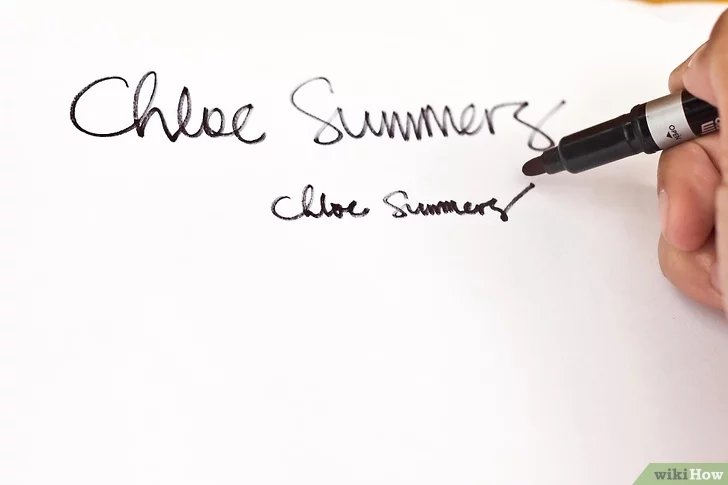 Chloe Summers
Chloe Summers
wikiHow